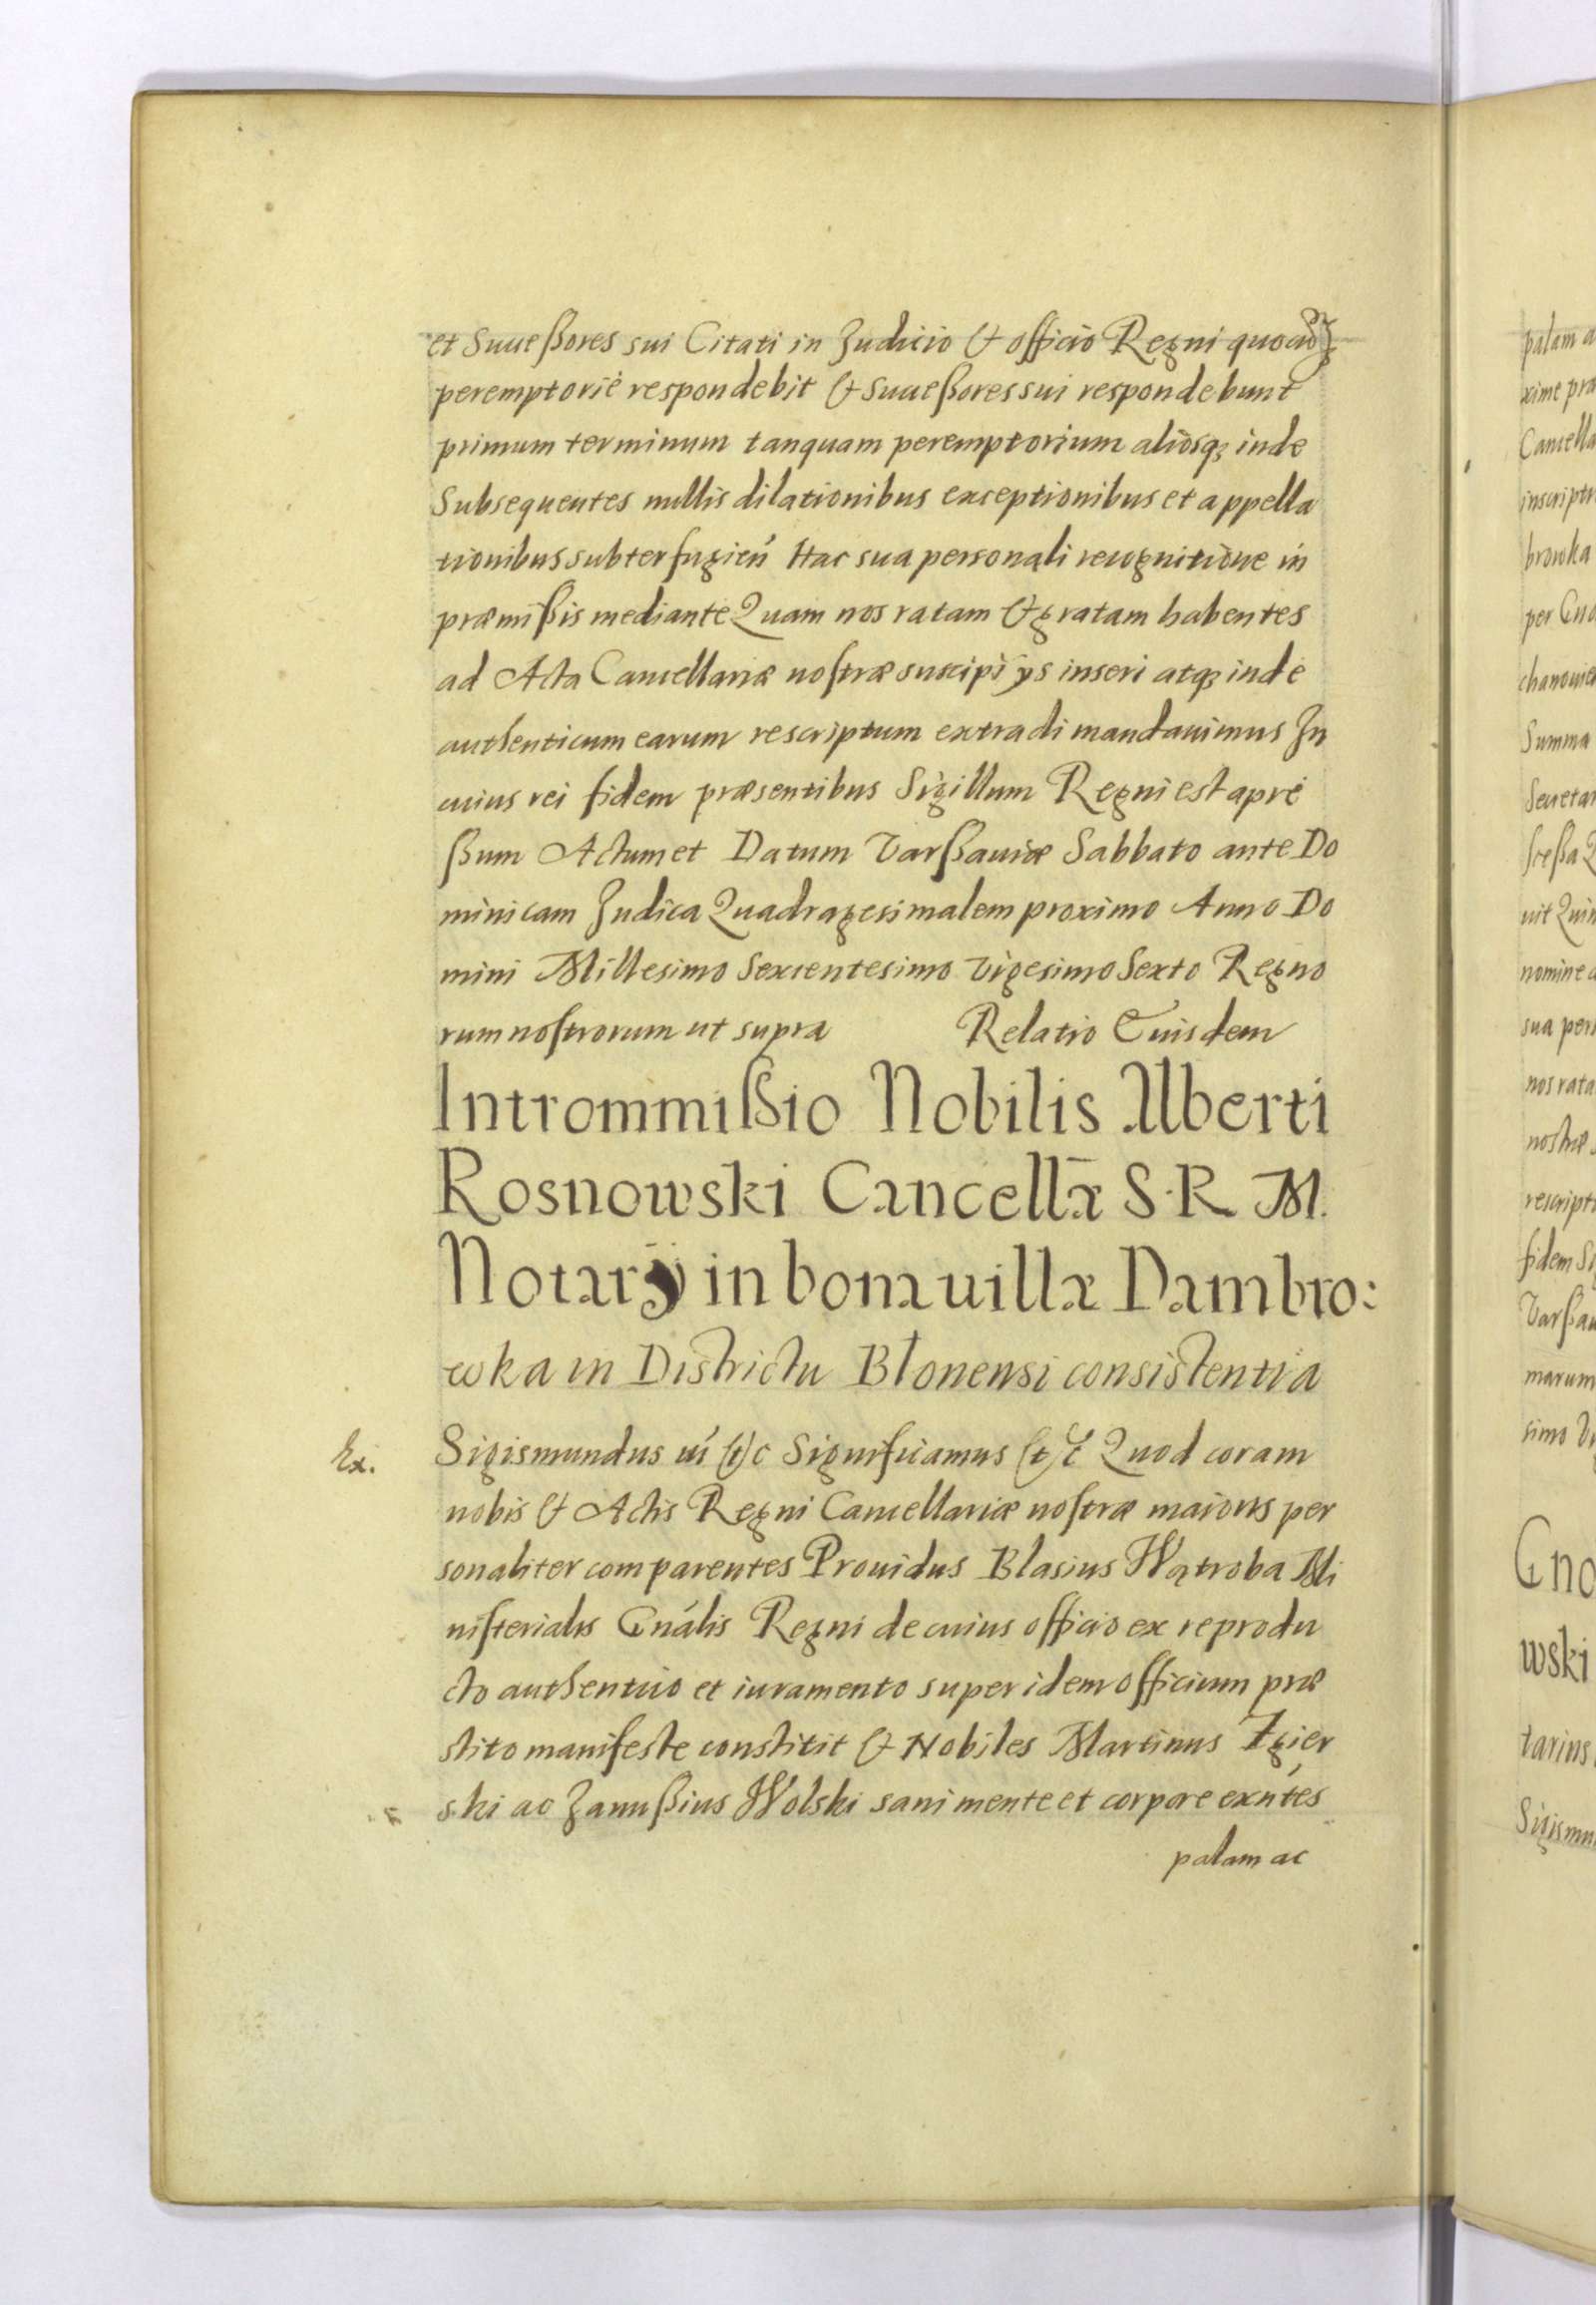 et Succeßores sui Citati in Judicio & officio Regni quocuq̃
peremptoriè respondebit & Succeßores sui respondebunt
primum terminum tanquam peremptorium aliosq; inde
Subsequentes nullis dilationibus exceptionibus et appella
tionibus subterfugien̄ Hac sua personali recognitione in
præmißis mediante Quam nos ratam & gratam habentes
ad Acta Cancellariæ nostræ suscipi ijs inseri atq; inde
authenticum earum rescriptum extradi mandauimus In
cuius rei fidem præsentibus Sigillum Regni est apre
ßum Actum et Datum Varßauiæ Sabbato ante Do
minicam Judica Quadragesimalem proximo Anno Do
mini Millesimo Sexcentesimo Vigesimo Sexto Regno
rum nostrorum ut supra Relatio Eiusdem
Intrommißio Nobilis Alberti
Rosnowski Cancellæ S. R. M.
Notarij in bona uillæ Dambro:
wka in Districtu Blonensi consistentia
Ex. Sigismundus ut &c Significamus &c Quod coram
nobis & Actis Regni Cancellariæ nostræ maioris per
sonaliter comparentes Prouidus Blasius Wątroba Mi
nisterialis Gnális Regni de cuius officio ex reprodu
cto authentico et iuramento super idem officium præ
stito manifeste constitit & Nobiles Martinus Zgier
ski ac Janußius Wolski sani mente et corpore exn̄tes
palam ac
palam a
xime præ
Cancella
inscripti
browka
per Gno
Summa
Secretar
nomine
sua pers
nos rata
nostræ
rescript
fidem Si
Varßau
marum
simo Vi
Gno
wski
tarius
Sigismun